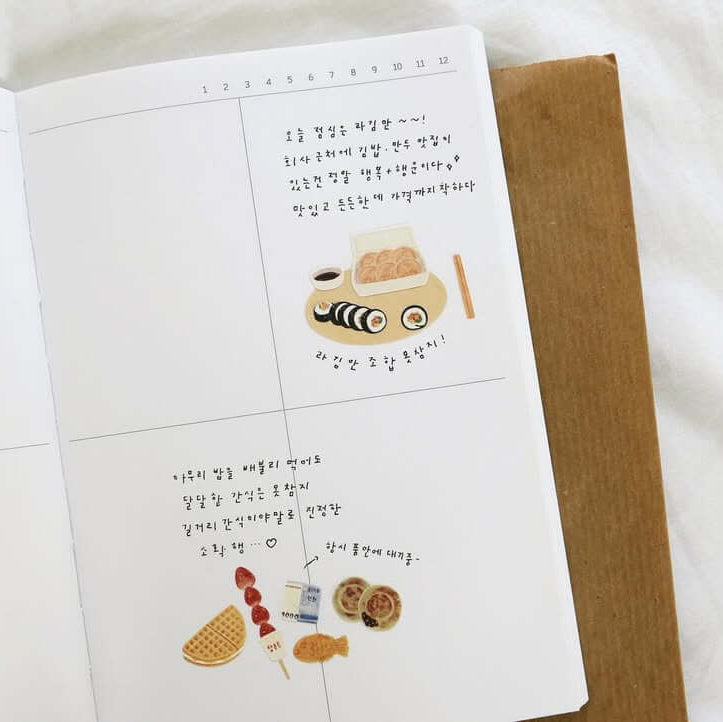 1 2 3 4 5 6 7 8 9 10 11 12
오늘 점심은 라김만 ~~!
회사 근처에 김밥. 만두 맛집이
있는건 정말 행복 + 행운이다
맛있고 든든한데 가격까지 착하다
라김만 조합 못참지!
아무리 밥을 배불리 먹어도
달달한 간식은 못참지
길거리 간식이야말로 진정한
소확행 ... ♡
항시 품안에 대기중~
1000